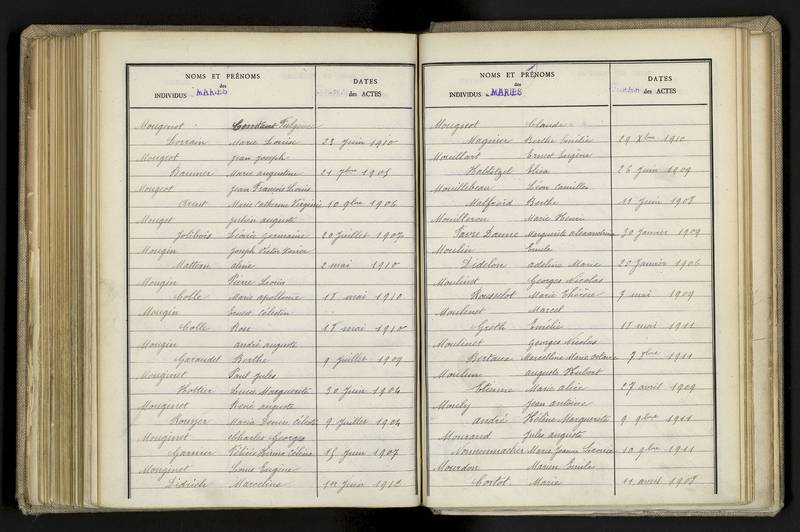 NOMS ET PRÉNOMS
des
INDIVIDUS MARIÉS
DATES
des ACTES
Mougenot Constant Fulgence
Lorrain Marie Louise 23 juin 1910
Mougeot Jean Joseph
Baumier Marie augustine 21 7bre 1905
Mougeot Jean François Louis
Marie Catherine Virginie 10 9bre 1906
Mouget Julien auguste
Jolibois Léonie Germaine 20 juillet 1907
Mougin Joseph Victor Xavier
Mattron aline 2 mai 1910
Mougin Pierre Louis
Colle Marie apollonie 17 mai 1910
Mougin Ernest Célestin
Colle Rose 17 mai 1910
Mougin andré auguste
Garaudel Berthe 9 juillet 1909
Mouginet Paul Jules
Hottier Marguerite 30 juin 1904
Mouginot René auguste
Rouyer Maria Denise 9 juillet 1904
Mouginot Charles Georges
Garnier Célina 15 juin 1907
Mouginot Louis Eugène
Didrich Marceline 1er 1912
NOMS ET PRÉNOMS
des
INDIVIDUS MARIÉS
DATES
des ACTES
Mougnot Claude
Magnier Berthe Emélie 29 Xbre 1910
Mouillart Ernest Eugène
Elisa 26 juin 1909
Mouillebeau Léon Camille
Malfroid Berthe 11 juin 1907
Mouilleron Marie Henri
Favre Danne Marguerite alexandrine 30 janvier 1909
Moulin Emile
Didelon adeline Marie 20 janvier 1906
Moulinet Georges Nicolas
Rousselot Marie Thérèse 7 mai 1909
Moulinet Marcel
Groth Emélie 11 mai 1911
Moulinet Georges Nicolas
Bertaux Marcelline Marie 9 1911
Moulun auguste Hubert
Etienne Marie alice 27 avril 1909
Mouly Jean antoine
andré Hélène Marguerite 9 9bre 1911
Mourand Jules auguste
Nonnenmacher Marie Jeanne 10 9bre 1911
Mourdon Marien Emile
Cortot Marie 11 avril 1907